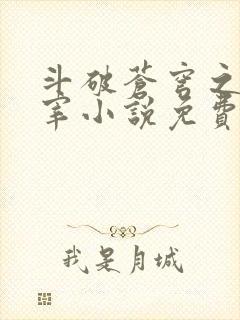 斗破蒼穹之
宰小說免費
我是月城